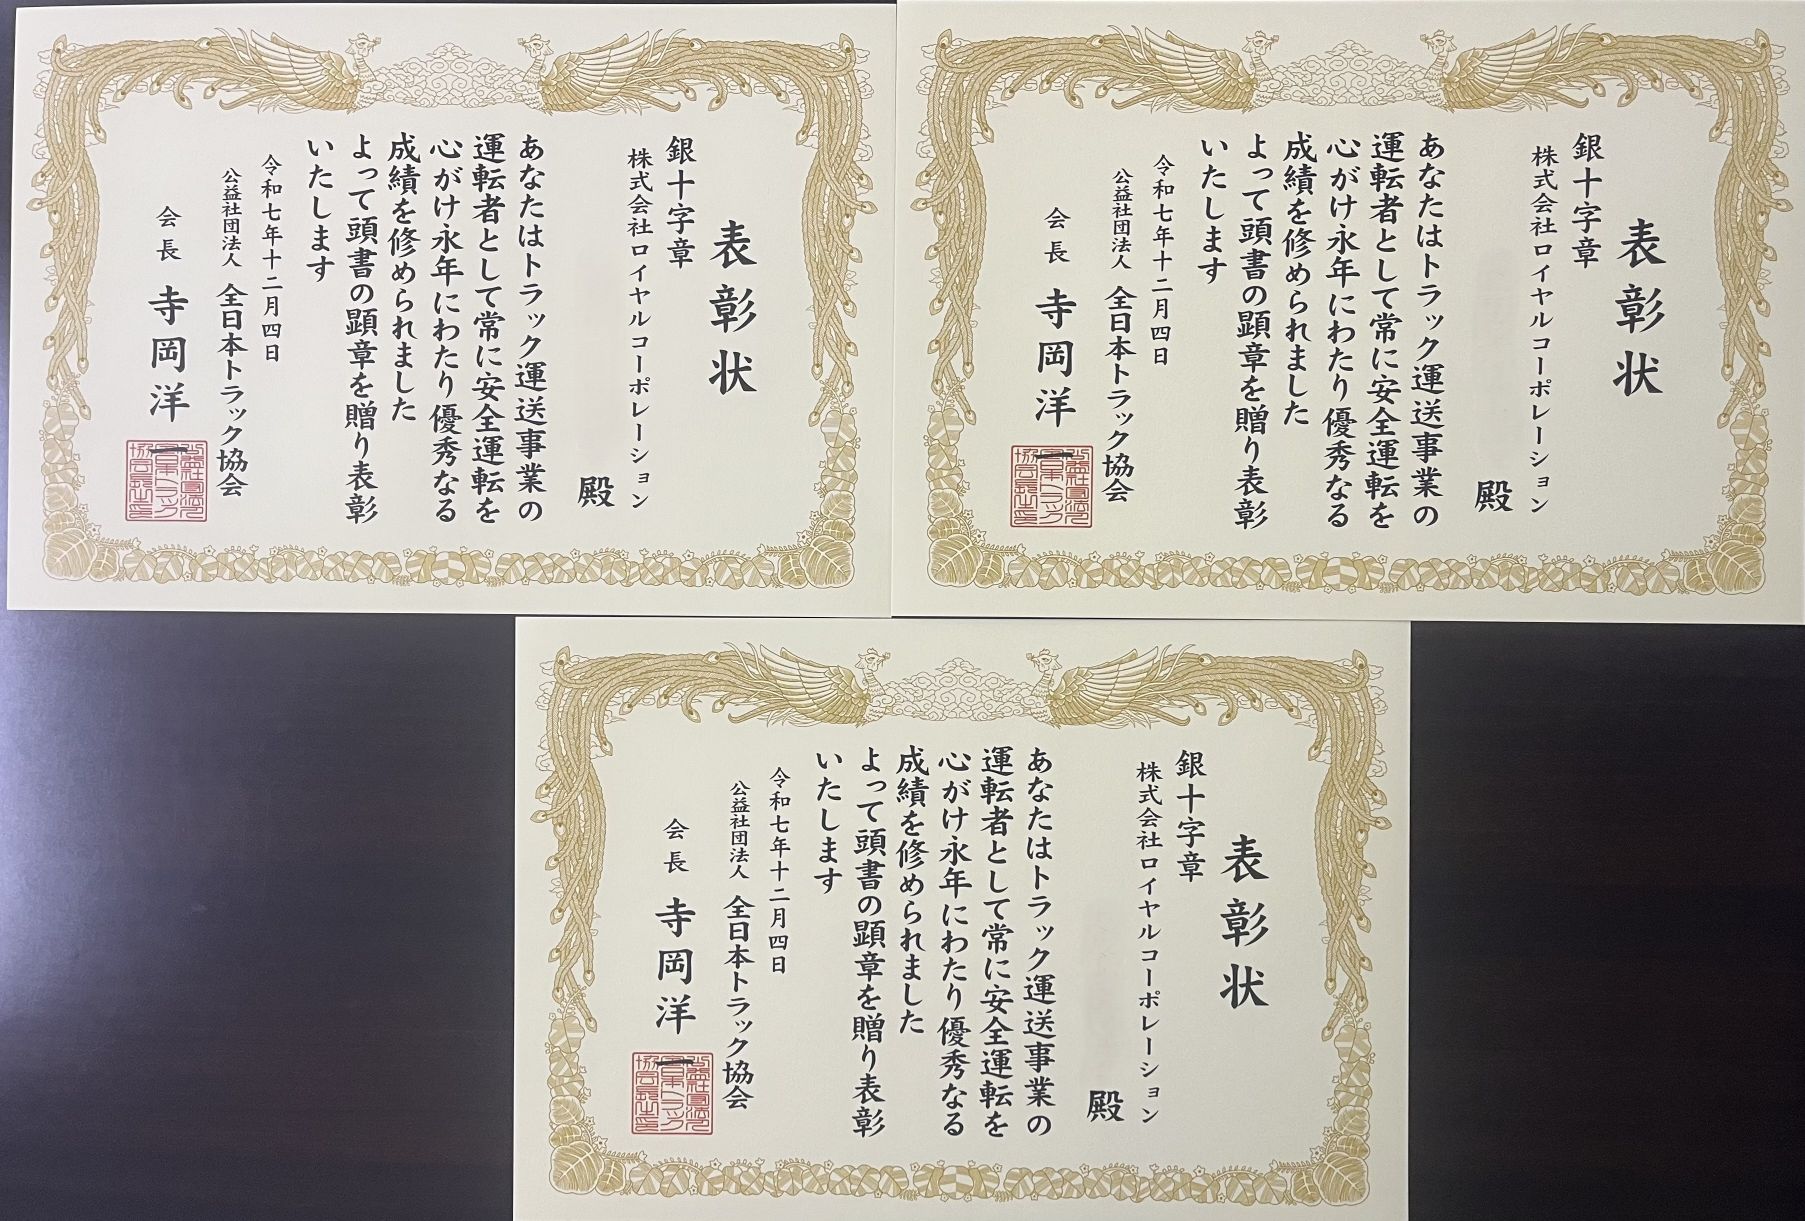 表彰状
銀十字章
株式会社ロイヤルコーポレーション
殿
あなたはトラック運送事業の
運転者として常に安全運転を
心がけ永年にわたり優秀なる
成績を修められました
よって頭書の顕章を贈り表彰
いたします
令和七年十二月四日
公益社団法人 全日本トラック協会
会長 寺岡洋一
公益社団法人
全日本トラック
協会長之印
表彰状
銀十字章
株式会社ロイヤルコーポレーション
殿
あなたはトラック運送事業の
運転者として常に安全運転を
心がけ永年にわたり優秀なる
成績を修められました
よって頭書の顕章を贈り表彰
いたします
令和七年十二月四日
公益社団法人 全日本トラック協会
会長 寺岡洋一
公益社団法人
全日本トラック
協会長之印
表彰状
銀十字章
株式会社ロイヤルコーポレーション
殿
あなたはトラック運送事業の
運転者として常に安全運転を
心がけ永年にわたり優秀なる
成績を修められました
よって頭書の顕章を贈り表彰
いたします
令和七年十二月四日
公益社団法人 全日本トラック協会
会長 寺岡洋一
公益社団法人
全日本トラック
協会長之印